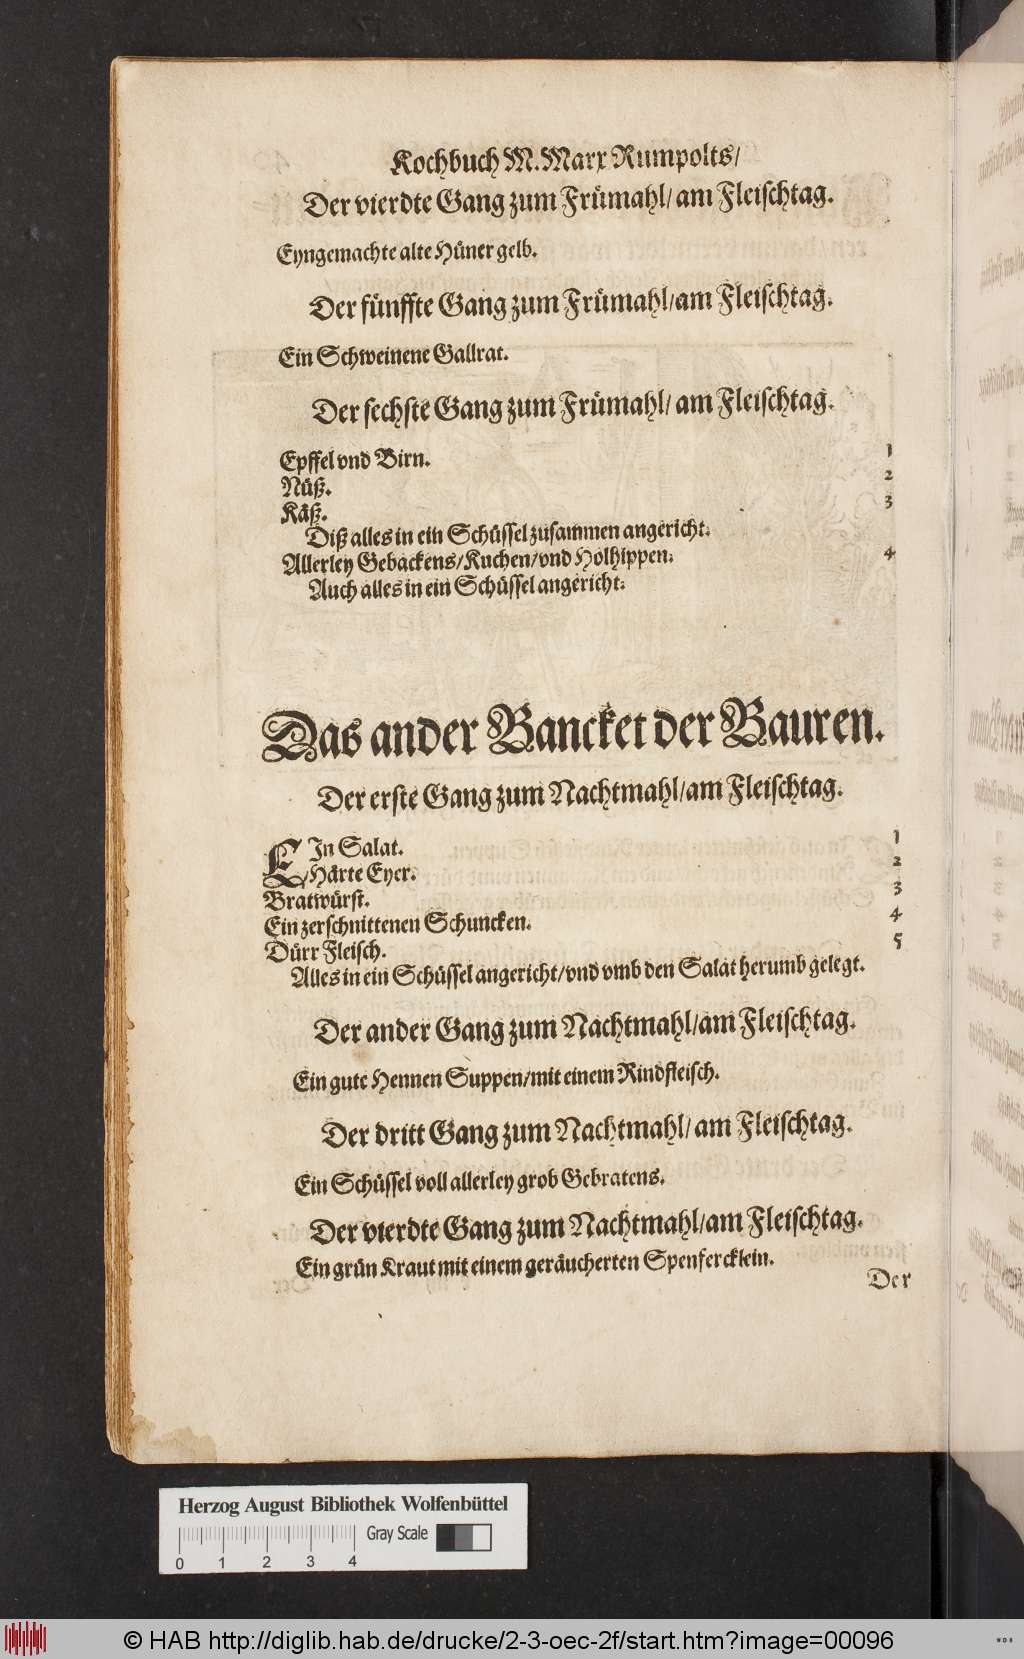 Kochbuch M. Marx Rumpolts/
Der vierdte Gang zum Frümahl/ am Fleischtag.
Eyngemachte alte Hüner gelb.
Der fünffte Gang zum Frümahl/am Fleischtag.
Ein Schweinene Gallrat.
Der sechste Gang zum Frümahl/ am Fleischtag.
Epffel vnd Birn. 1
Nüß. 2
Käß. 3
Diß alles in ein Schüssel zusammen angericht.
Allerley Gebackens/Kuchen/vnd Holhippen. 4
Auch alles in ein Schüssel angericht.
Das ander Bancket der Bauren.
Der erste Gang zum Nachtmahl/am Fleischtag.
EIn Salat. 1
Härte Eyer. 2
Bratwürst. 3
Ein zerschnittenen Schuncken. 4
Dürr Fleisch. 5
Alles in ein Schüssel angericht/vnd vmb den Salat herumb gelegt.
Der ander Gang zum Nachtmahl/am Fleischtag.
Ein gute Hennen Suppen/mit einem Rindfleisch.
Der dritt Gang zum Nachtmahl/ am Fleischtag.
Ein Schüssel voll allerley grob Gebratens.
Der vierdte Gang zum Nachtmahl/am Fleischtag.
Ein grün Kraut mit einem geräucherten Spenfercklein.
Der
Herzog August Bibliothek Wolfenbüttel
Gray Scale
0 1 2 3 4
© HAB http://diglib.hab.de/drucke/2-3-oec-2f/start.htm?image=00096